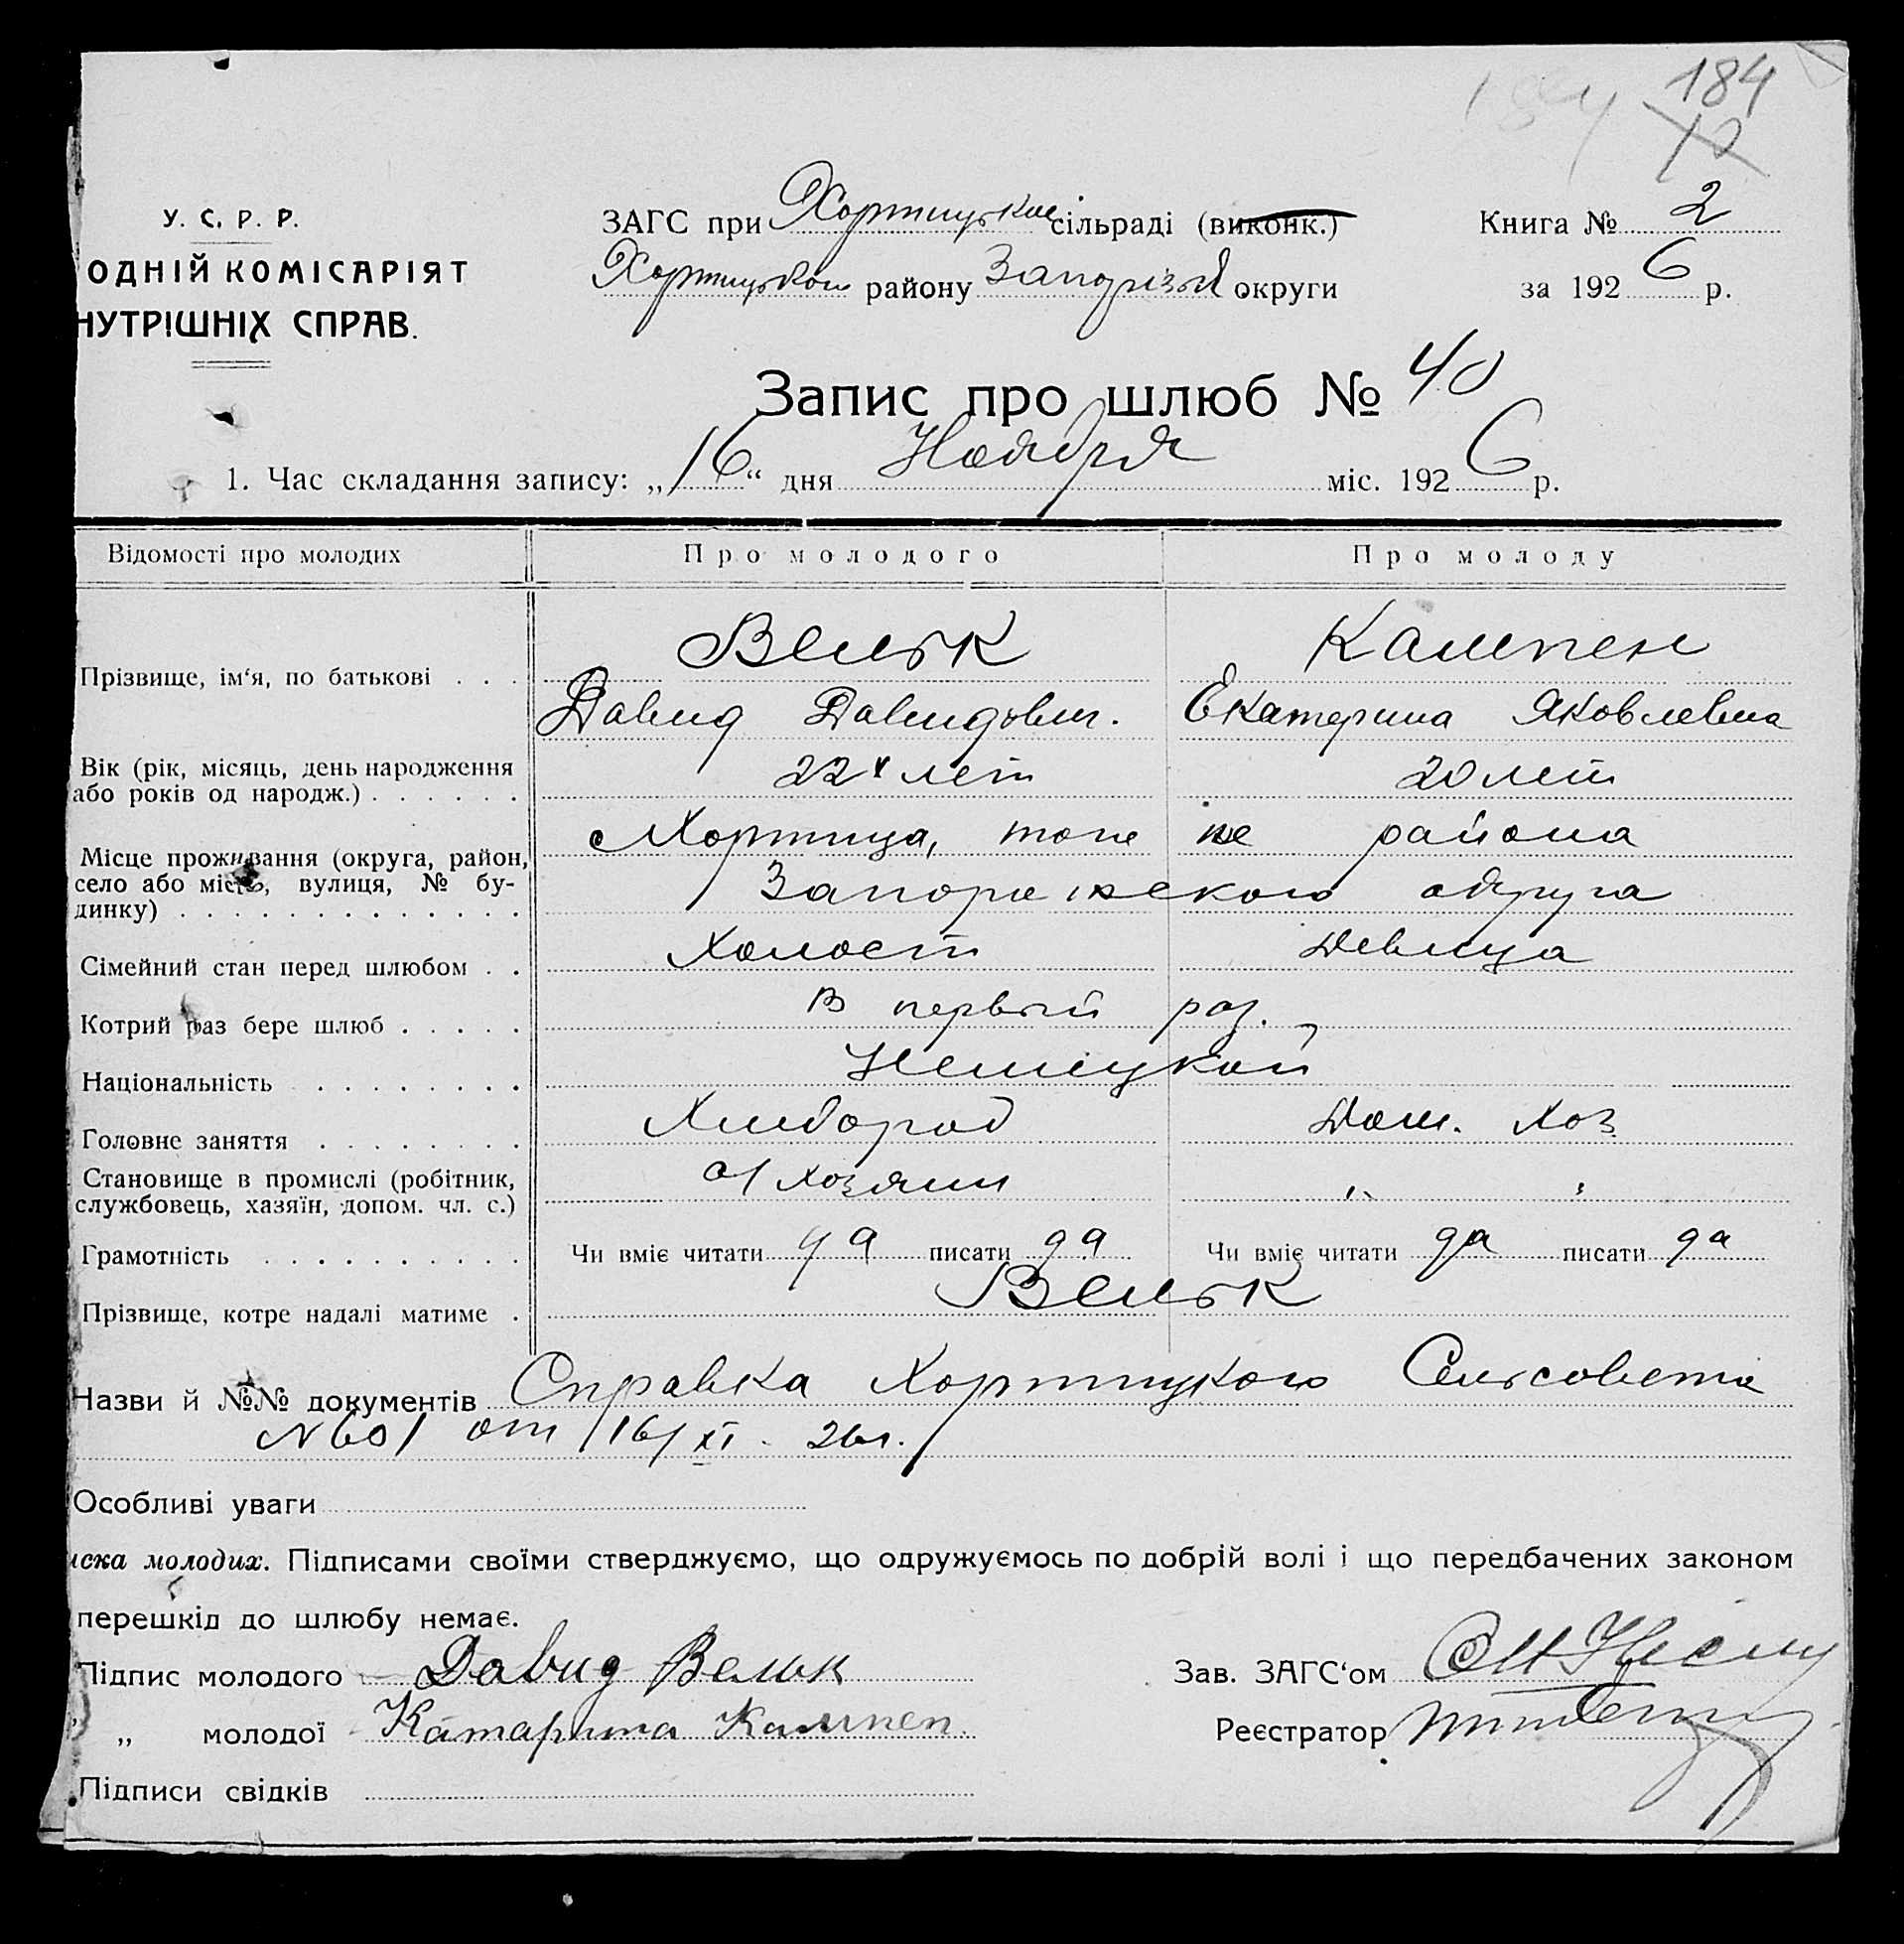 184
184
10
У. С. Р. Р.
ОДНІЙ КОМІСАРІЯТ
НУТРІШНІХ СПРАВ.
ЗАГС при Хортицькое сільраді (виконк.)
Хортицьком району Запорізьк округи
Книга № 2
за 1926 р.
Запис про шлюб № 40
1. Час складання запису: „16“ дня Ноября міс. 1926 р.
Відомості про молодих
Про молодого
Про молоду
Прізвище, ім‘я, по батькові . . .
Вельк
Кампен
Давид Давидович.
Екатерина Яковлевна
Вік (рік, місяць, день народження
або років од народж.) . . . . . .
22х лет
20 лет
Місце проживання (округа, район,
село або місто, вулиця, № бу-
динку) . . . . . . . . . . . . .
с Хортица, того же района
Запорожского округа
Сімейний стан перед шлюбом . .
Холост
Девица
Котрий раз бере шлюб . . . . .
В первый раз.
Національність . . . . . . . .
Немецкой
Головне заняття . . . . . . . .
Хлебороб
Дом. Хоз
Становище в промислі (робітник,
службовець, хазяїн, допом. чл. с.)
с/хозяин
„ „
Грамотність . . . . . . . . . .
Чи вміє читати да писати да
Чи вміє читати да писати да
Прізвище, котре надалі матиме .
Вельк
Назви й №№ документів Справка Хортицкого Сельсовета
№601 от 16/XI - 26г.
Особливі уваги
иска молодих. Підписами своїми стверджуємо, що одружуємось по добрій волі і що передбачених законом
перешкід до шлюбу немає.
Підпис молодого Давид Вельк
„ молодої Катарина Кампен.
Підписи свідків
Зав. ЗАГС‘ом
Реєстратор